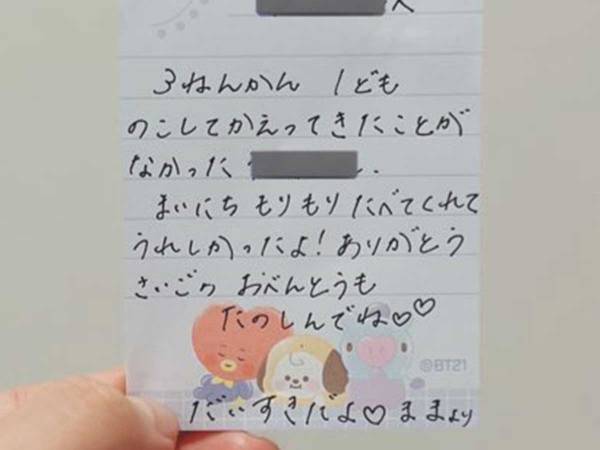 へ
3ねんかん 1ども
のこしてかえってきたことが
なかった
まいにち もりもり たべてくれて
うれしかったよ!ありがとう
さいごの おべんとうも
たのしんでね♡♡
©BT21
だいすきだよ♡ ままより